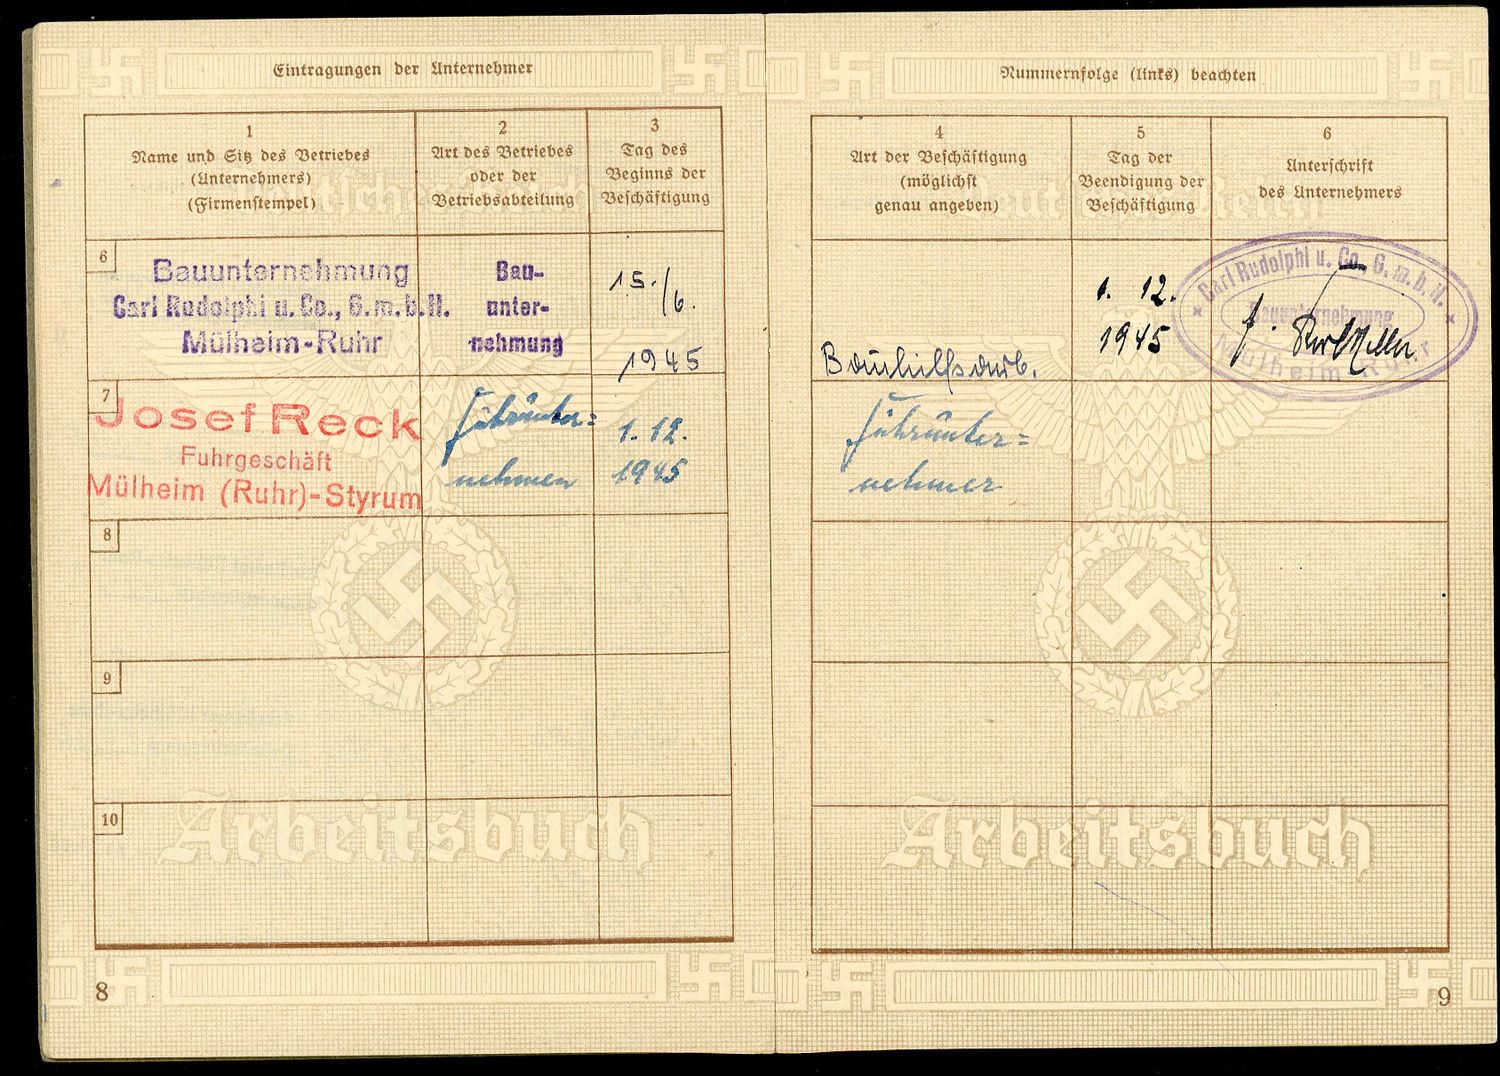 Eintragungen der Unternehmer
1
Name und Sitz des Betriebes
(Unternehmers)
(Firmenstempel)
2
Art des Betriebes
oder der
Betriebsabteilung
3
Tag des
Beginns der
Beschäftigung
6
Bauunternehmung
Carl Rudolphi u. Co., G.m.b.H.
Mülheim-Ruhr
Bau-
unter-
nehmung
15./6.
1945
7
Josef Reck
Fuhrgeschäft
Mülheim (Ruhr)-Styrum
Fuhrunter=
nehmen
1.12.
1945
8
9
10
Arbeitsbuch
8
Nummernfolge (links) beachten
4
Art der Beschäftigung
(möglichst
genau angeben)
5
Tag der
Beendigung der
Beschäftigung
6
Unterschrift
des Unternehmers
Bauhilfsarb.
1. 12.
1945
Carl Rudolphi u. Co. G.m.b.H.
Bauunternehmung
Mülheim-Ruhr
Fuhrunter=
nehmer
Arbeitsbuch
9